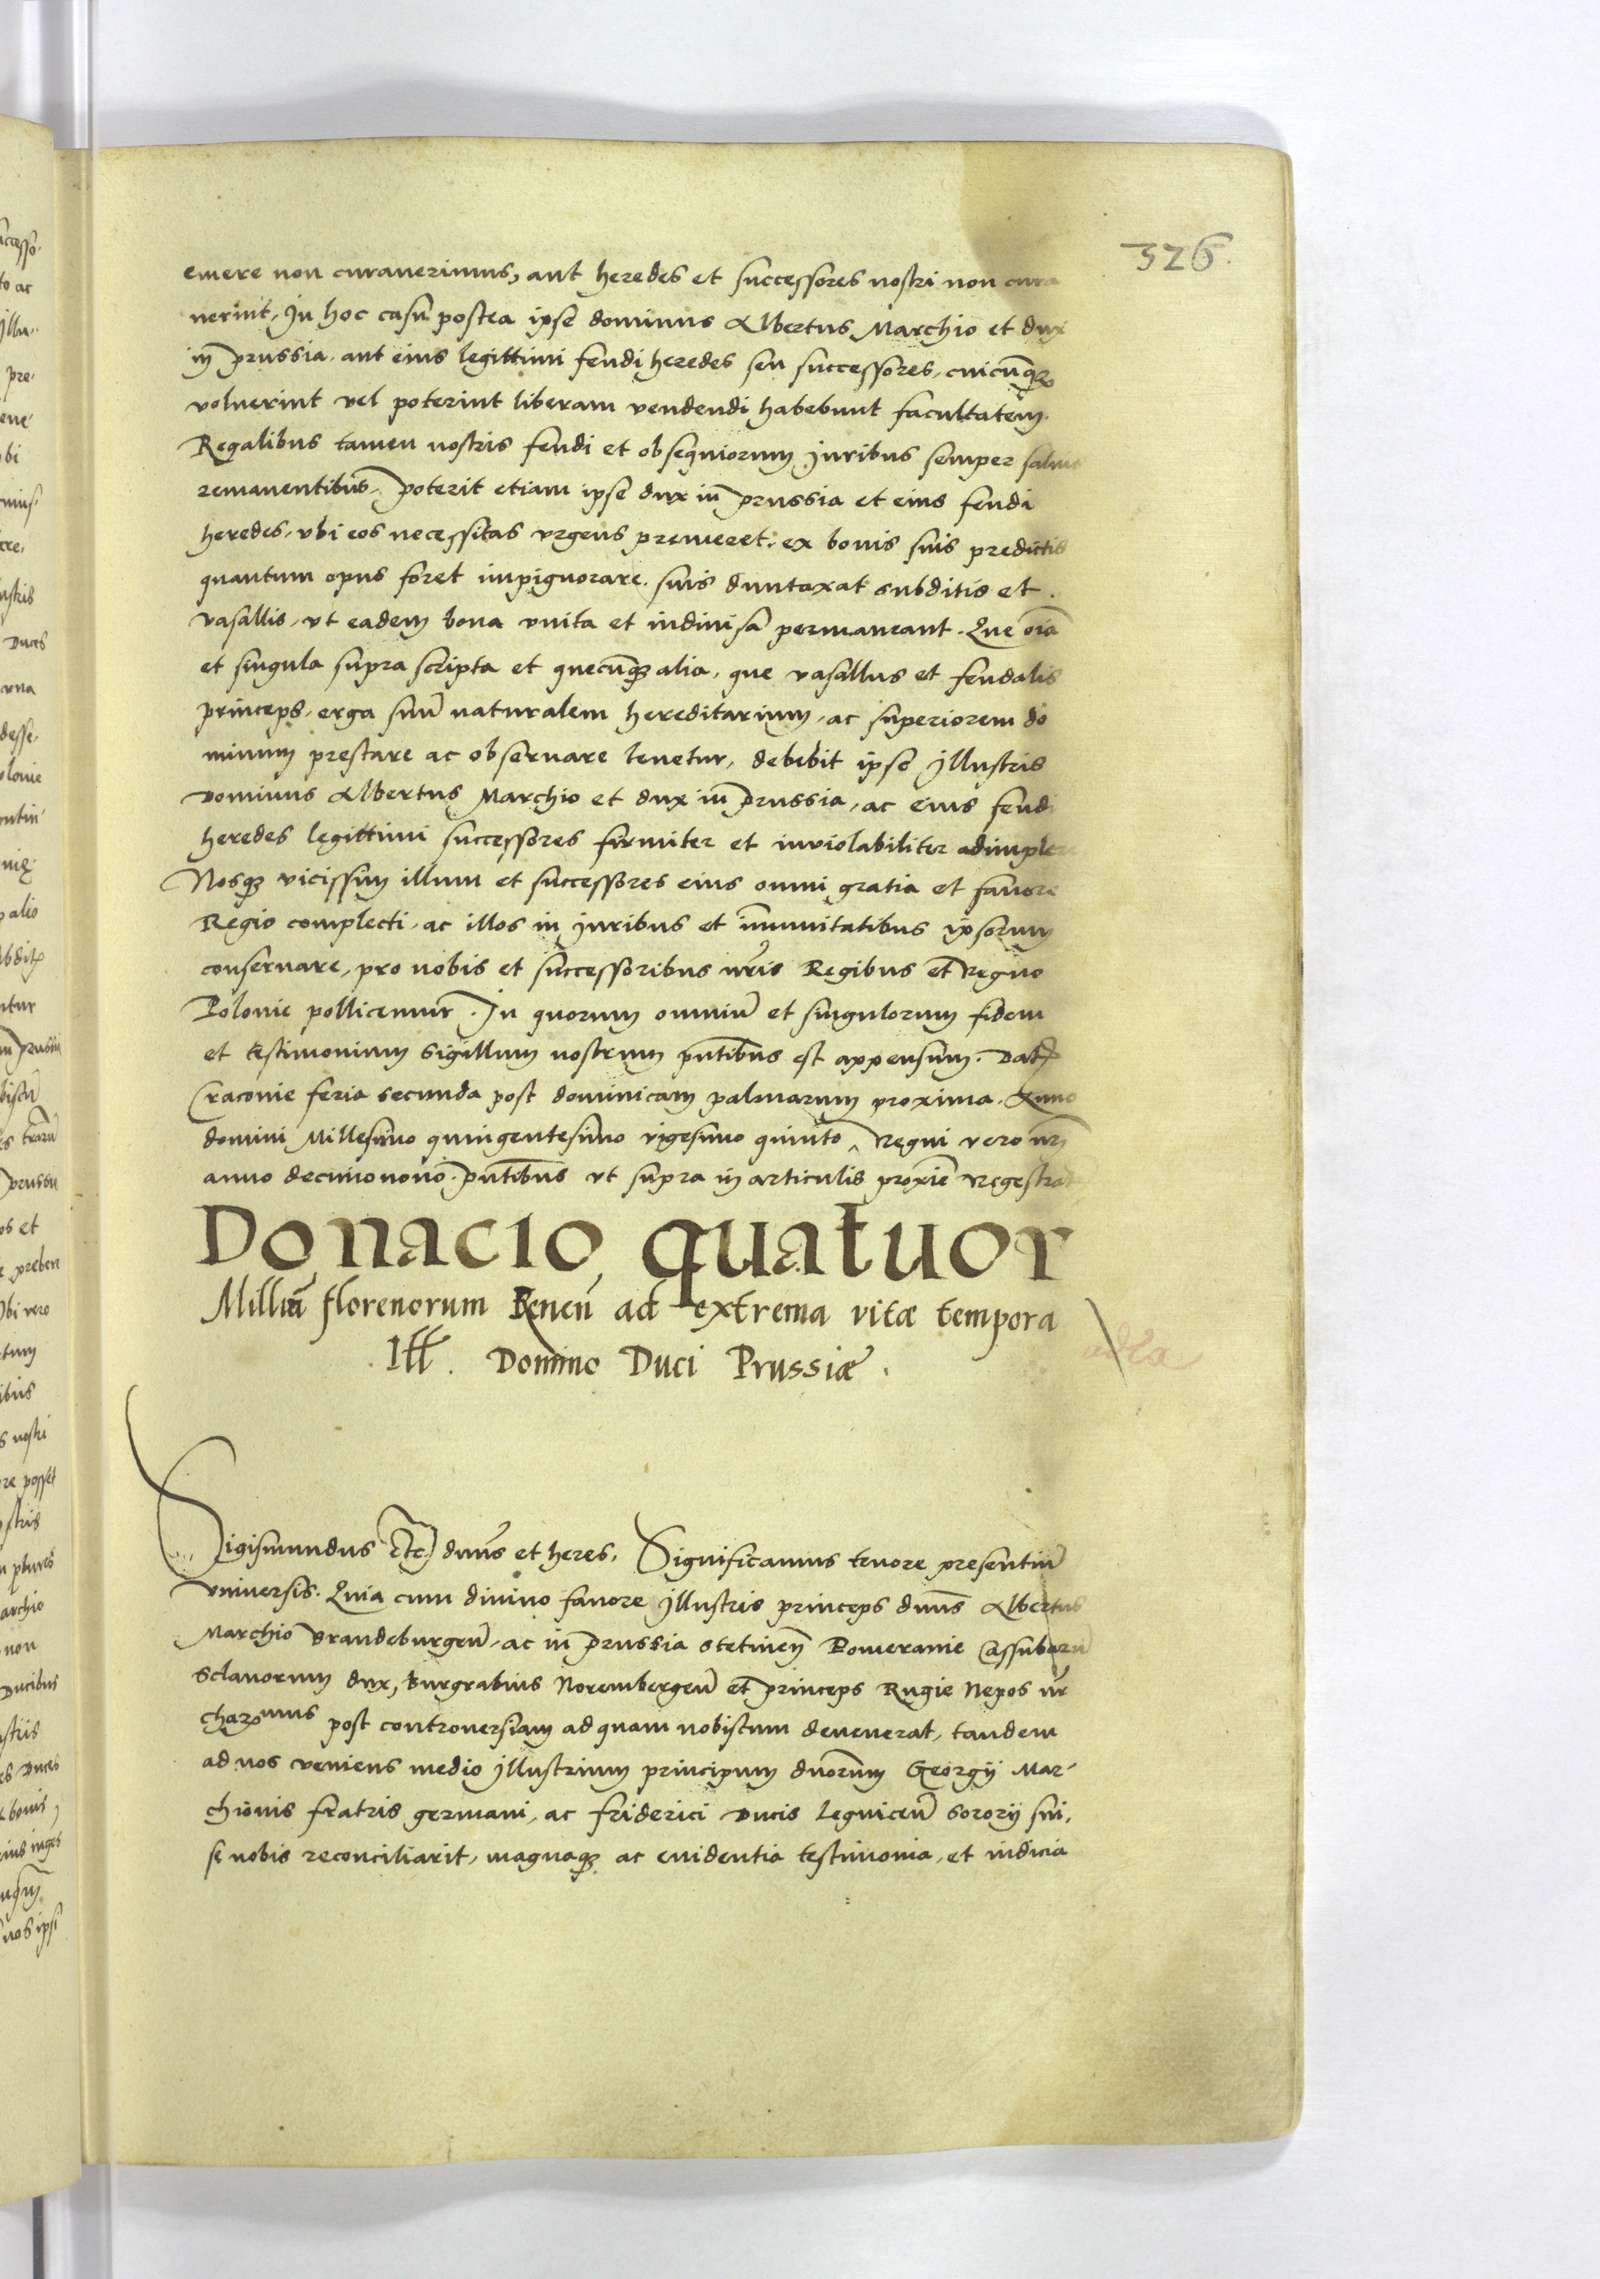 326.
emere non curauerimus, aut heredes et successores nostri non cura
uerint, In hoc casu postea ipse dominus Albertus Marchio et dux
in prussia, aut eius legittimi feudi heredes seu successores, cuicunqȝ
voluerint vel poterint liberam vendendi habebunt facultatem.
Regalibus tamen nostris feudi et obsequiorum Juribus semper saluis
remanentibus, poterit etiam ipse dux in prussia et eius feudi
heredes, vbi eos necessitas vrgens premeret, ex bonis suis predictis
quantum opus foret impignorare, suis duntaxat subditis et
vasallis, vt eadem bona vnita et indiuisa permaneant. Que oīa
et singula supra scripta et quecunqȝ alia, que vasallus et feudalis
princeps, erga suū naturalem hereditarium, ac superiorem do
minum prestare ac obseruare tenetur, debebit ipse Illustris
Dominus Albertus Marchio et dux in prussia, ac eius feudi
heredes legittimi successores firmiter et inviolabiliter adimplere
Nosqȝ vicissim illum et successores eius omni gratia et fauore
Regio complecti, ac illos in Juribus et īmunitatibus ipsorum
conseruare, pro nobis et successoribus nr̄is Regibus et Regno
Polonie pollicemur. In quorum omniū et singulorum fidem
et testimonium sigillum nostrum pn̄tibus est appensum. Dat
Cracouie feria secunda post dominicam palmarum proxima. Anno
domini Millesimo quingentesimo vigesimo quinto, Regni vero nr̄i
anno decimonono. pn̄tibus vt supra in articulis proxīe Regestrat
Donacio quatuor
Milliū florenorum Renen̄ ad extrema vitæ tempora
Ill. Domino Duci Prussiæ.
Sigismundus etc dnūs et heres. Significamus tenore presentiū
vniversis. Quia cum diuino fauore Illustris princeps dnūs Albertus
Marchio Brandeburgen̄, ac in prussia Stetinen̄ Pomeranie Cassuborū
Sclauorum dux, Burgrabius Norembergen̄ et princeps Rugie Nepos nr̄
charmus post controuersiam ad quam nobiscum deuenerat, tandem
ad nos veniens medio Illustrium principum dnorum Georgij Mar-
chionis fratris germani, ac friderici Ducis Legnicen̄ sororij sui,
se nobis reconciliarit, magnaqȝ ac euidentia testimonia, et indicia